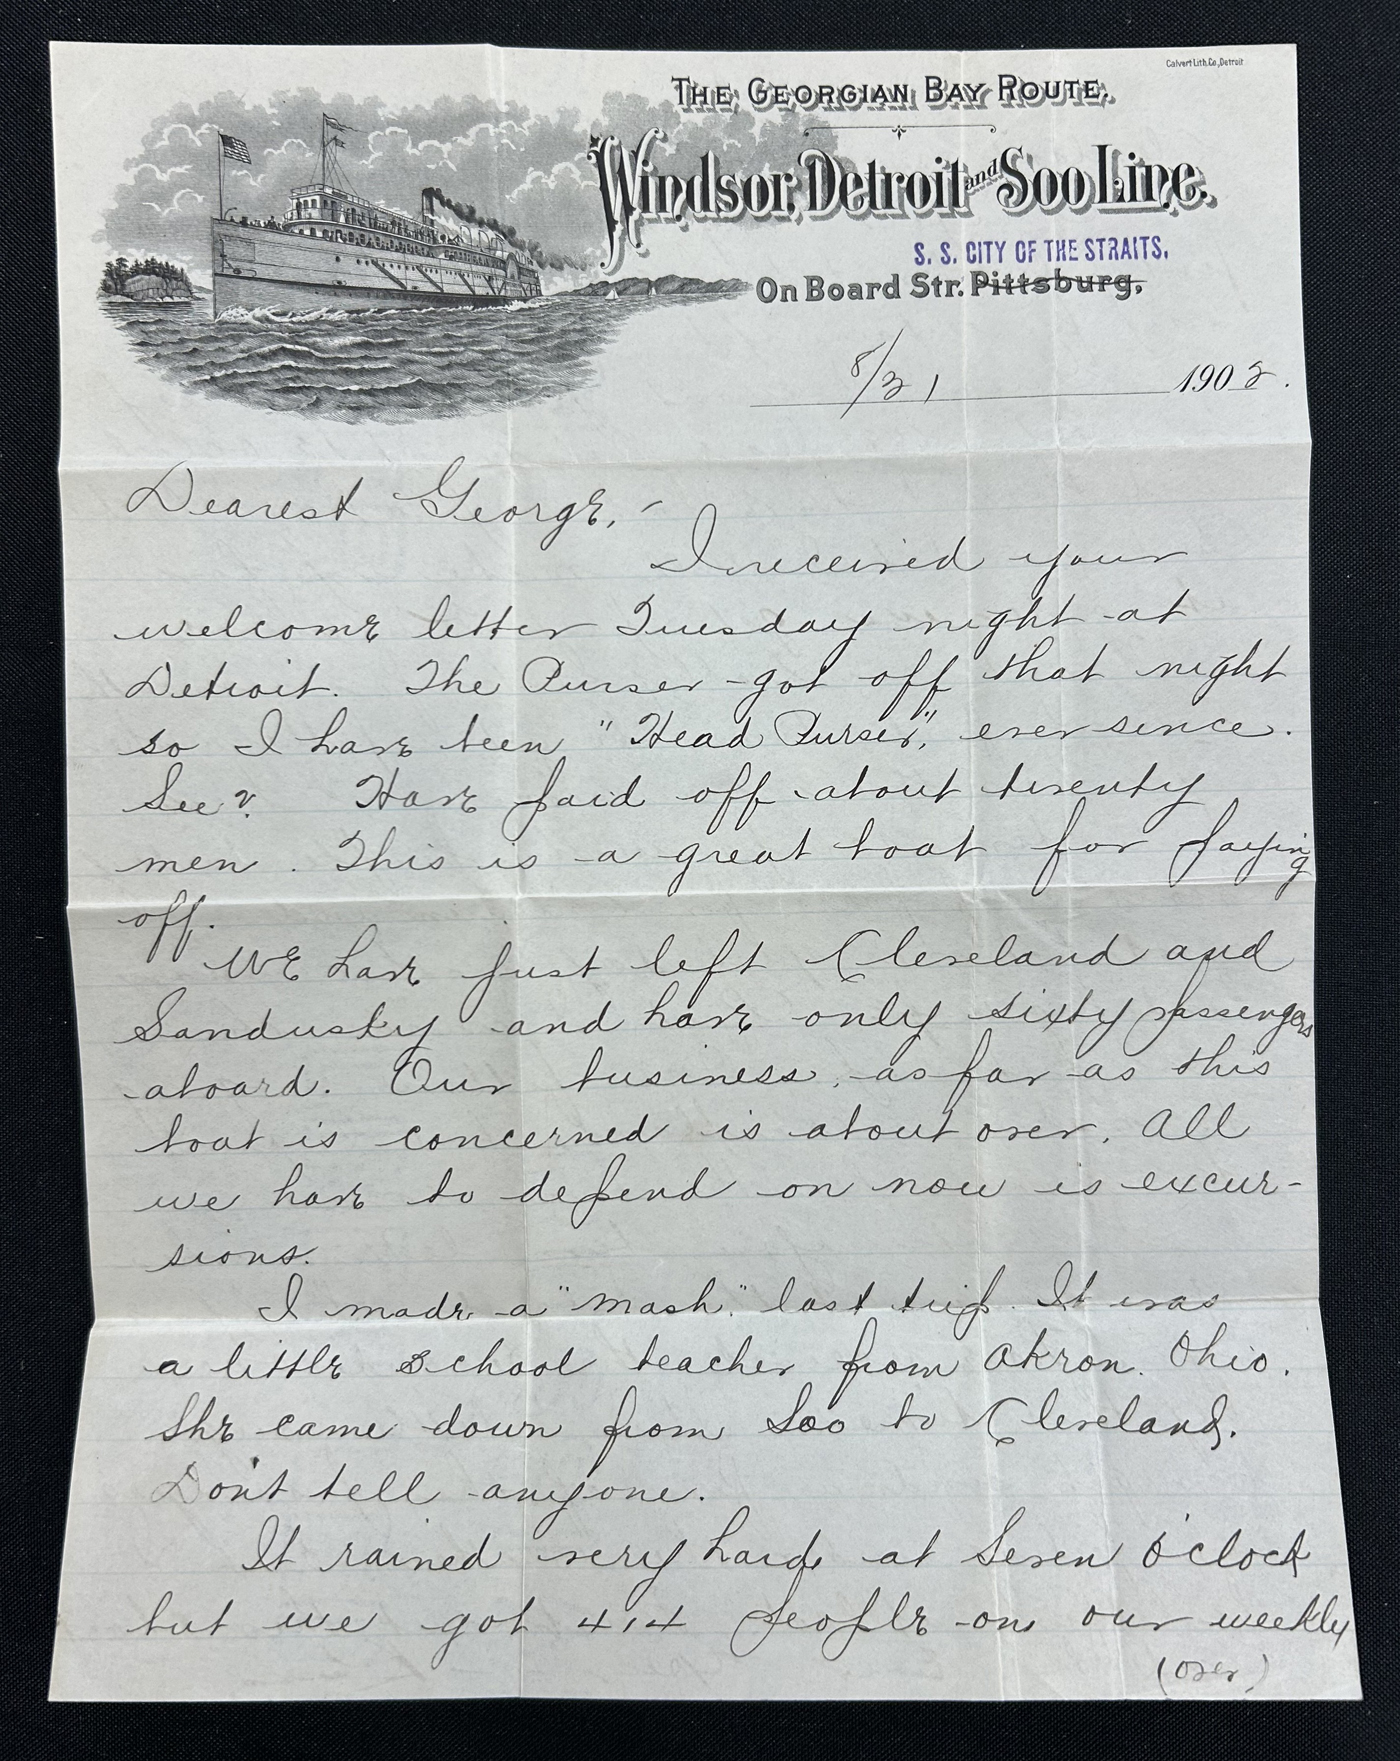 Calvert Lith. Co., Detroit
THE GEORGIAN BAY ROUTE.
Windsor, Detroit and Soo Line.
S. S. CITY OF THE STRAITS.
On Board Str. Pittsburg,
8/21 1902.
Dearest George, -
I received your
welcome letter Tuesday night at
Detroit. The Purser got off that night
so I have been "Head Purser", ever since.
See? Have paid off about twenty
men. This is a great boat for paying
off.
We have just left Cleveland and
Sandusky and have only sixty passengers
aboard. Our business, as far as this
boat is concerned is about over. All
we have to depend on now is excur-
sions.
I made a "mash" last trip. It was
a little school teacher from Akron. Ohio.
She came down from Soo to Cleveland.
Don't tell anyone.
It rained very hard at Seven o'clock
but we got 414 people on our weekly
(over)